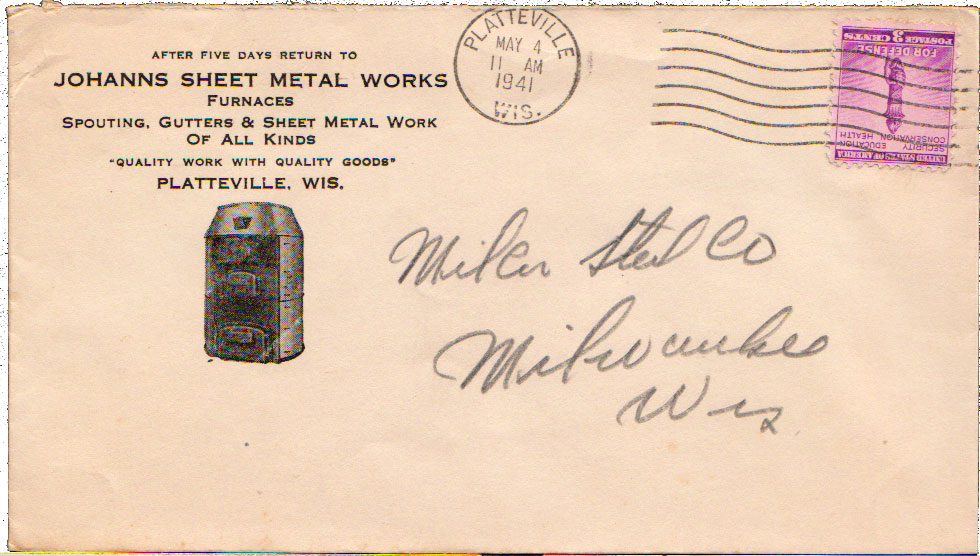 AFTER FIVE DAYS RETURN TO
JOHANNS SHEET METAL WORKS
FURNACES
SPOUTING, GUTTERS & SHEET METAL WORK
OF ALL KINDS
"QUALITY WORK WITH QUALITY GOODS"
PLATTEVILLE, WIS.
PLATTEVILLE
MAY 4
11 AM
1941
WIS.
UNITED STATES OF AMERICA
SECURITY EDUCATION
CONSERVATION HEALTH
FOR DEFENSE
POSTAGE 3 CENTS
Steel Co
Milwaukee
Wis